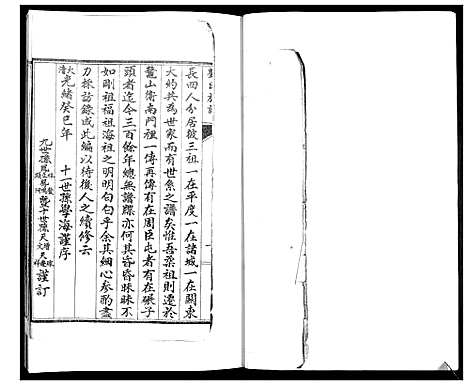 長四人分居彼三祖一在平度一在諸城一在關東
大約共為世家而有世系之譜矣惟吾榮祖則遷於
鰲山衛南門裡一傳再傳有在周臣屯者有在碾子
頭者迄今三百餘年總無譜牒亦何其昏昏昧昧不
如剛祖福祖海祖之明明白白乎余其細心參酌盡
力採訪錄成此編以待後人之續修云
大清光緒癸巳年 十一世孫學海謹序
九世孫 暨十世孫天 謹訂